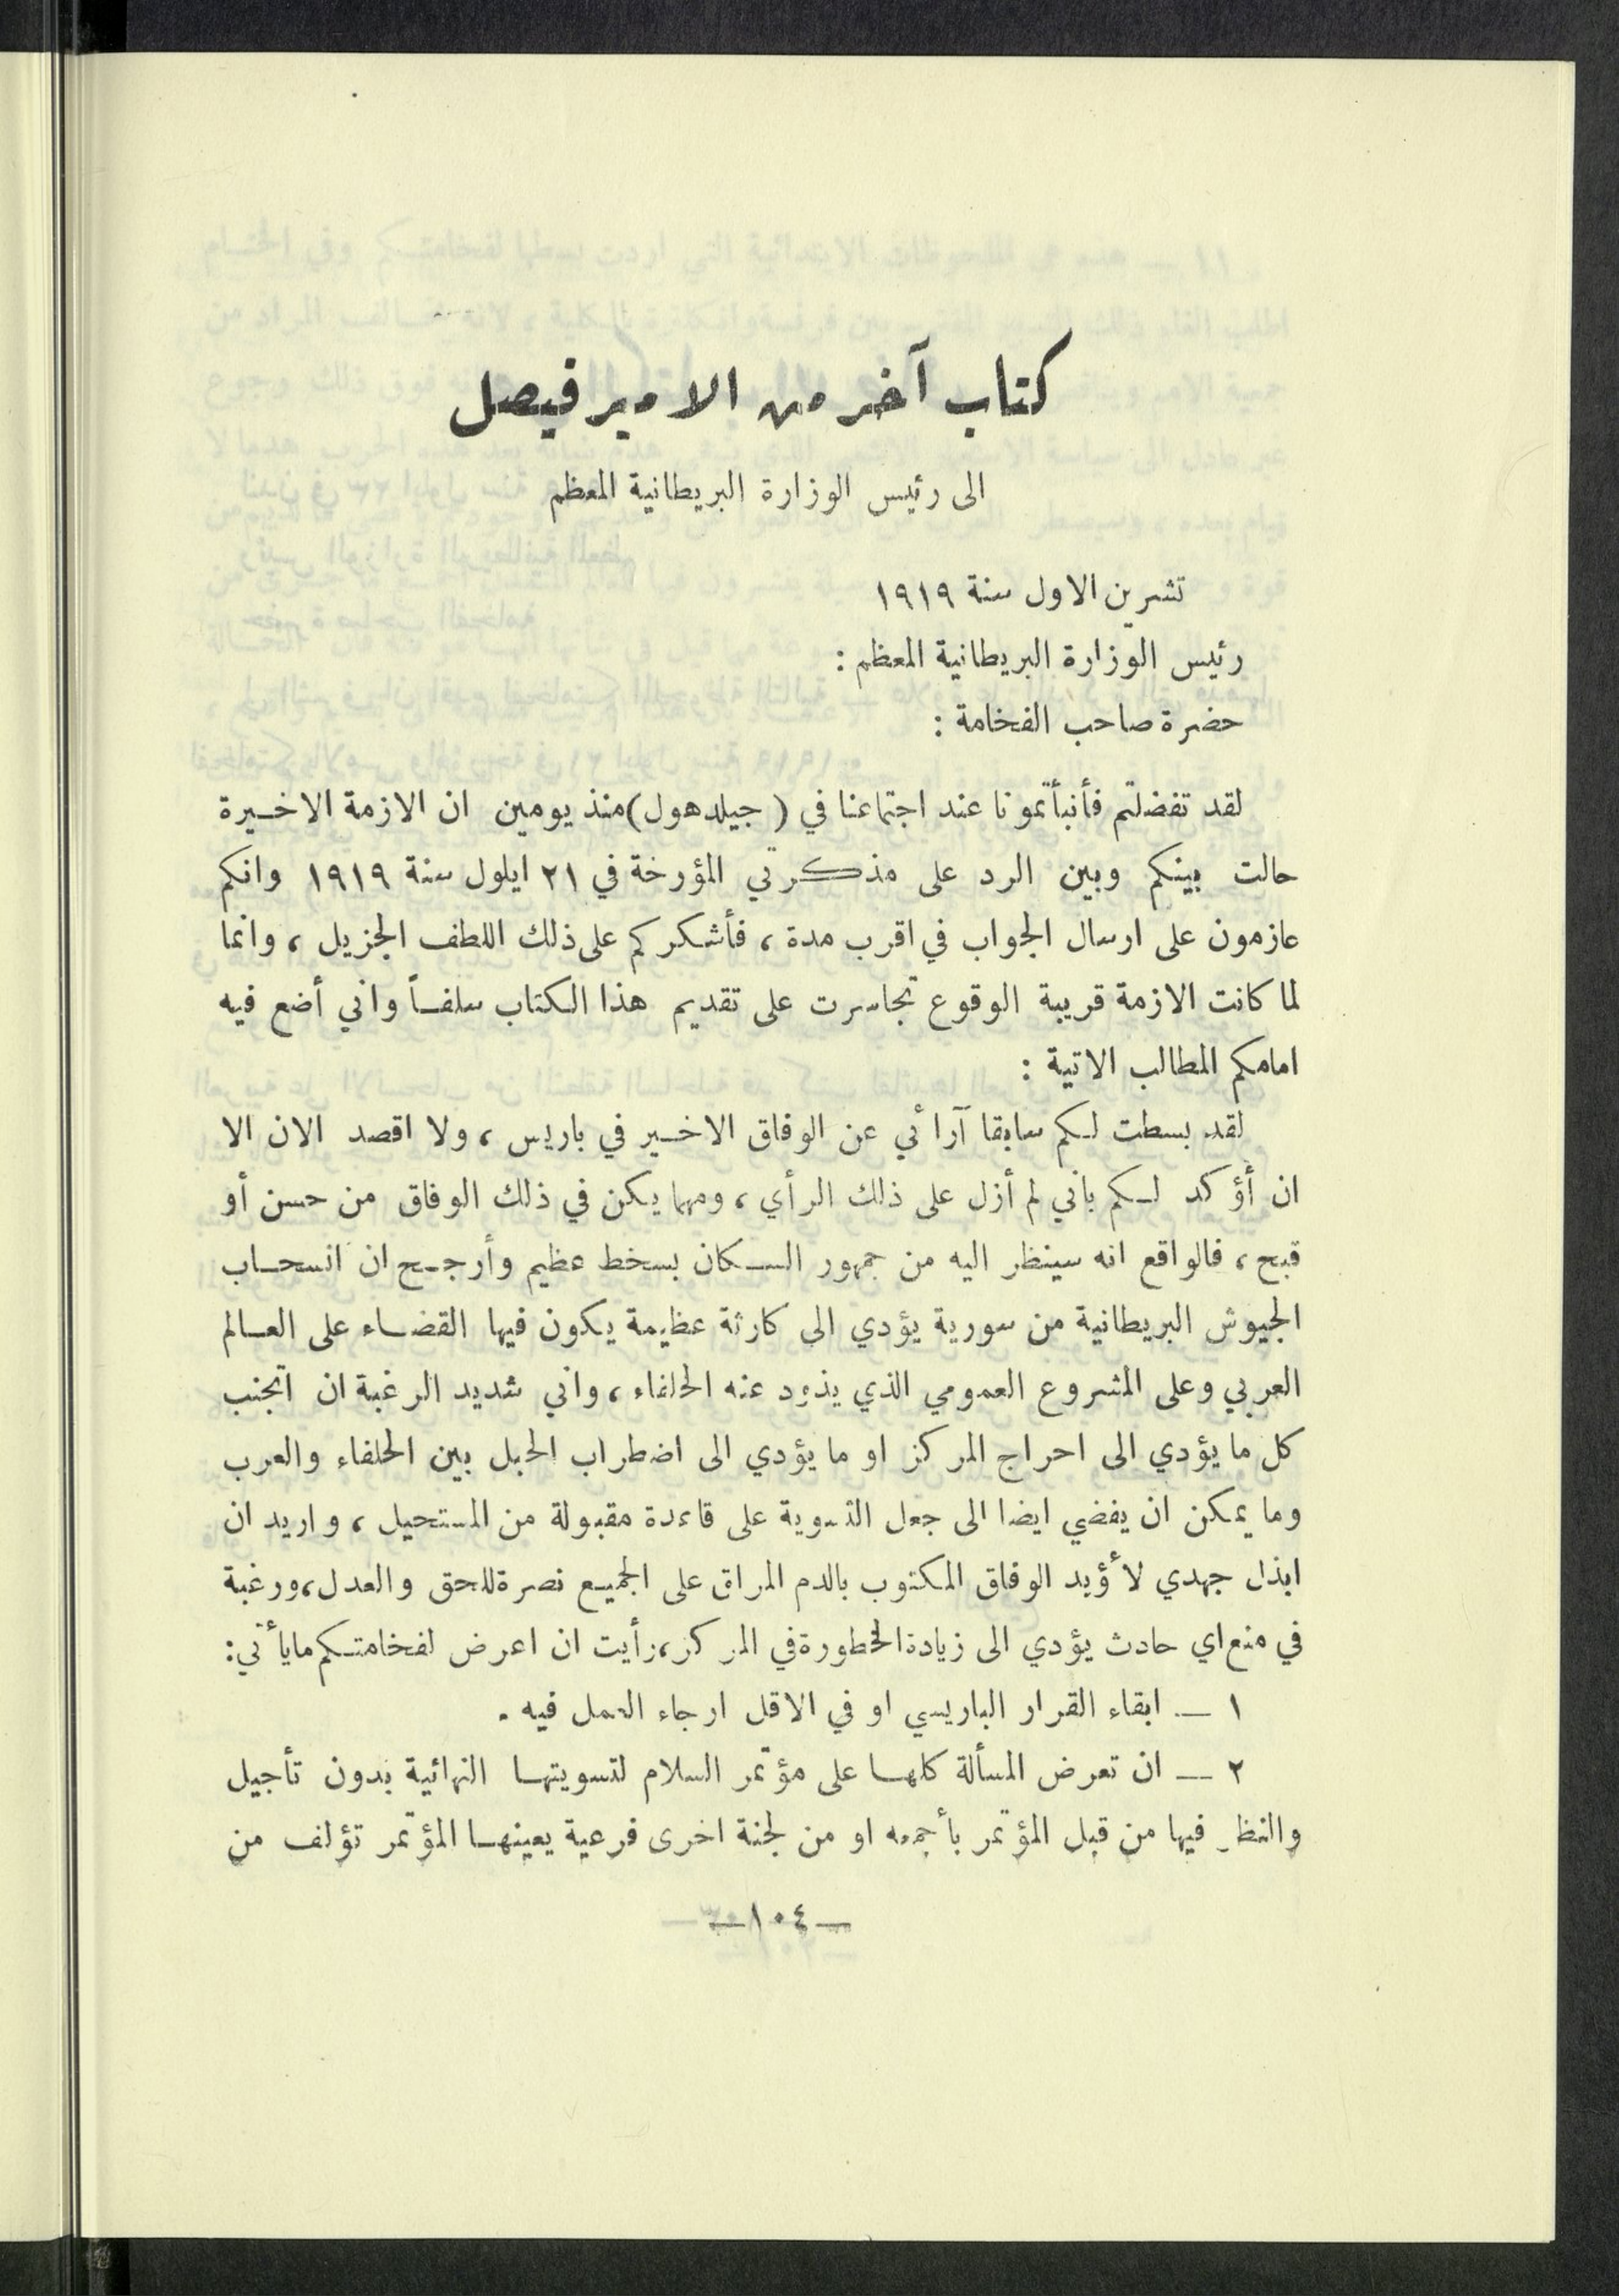 كتاب آخر من الامير فيصل
الى رئيس الوزارة البريطانية المعظم
تشرين الاول سنة ١٩١٩
رئيس الوزارة البريطانية المعظم :
حضرة صاحب الفخامة :
لقد تفضلتم فأنبأتمونا عند اجتماعنا في ( جيلدهول)منذ يومين ان الازمة الاخيرة
حالت بينكم وبين الرد على مذكرتي المؤرخة في ٢١ ايلول سنة ١٩١٩ وانكم
عازمون على ارسال الجواب في اقرب مدة ، فأشكركم على ذلك اللطف الجزيل ، وانما
لما كانت الازمة قريبة الوقوع تجاسرت على تقديم هذا الكتاب سلفاً واني أضع فيه
امامكم المطالب الاتية :
لقد بسطت لكم سابقا آرائي عن الوفاق الاخير في باريس ، ولا اقصد الان الا
ان أؤكد لكم باني لم أزل على ذلك الرأي ، ومهما يكن في ذلك الوفاق من حسن أو
قبح ، فالواقع انه سينظر اليه من جمهور السكان بسخط عظيم وأرجح ان انسحاب
الجيوش البريطانية من سورية يؤدي الى كارثة عظيمة يكون فيها القضاء على العالم
العربي وعلى المشروع العمومي الذي يذود عنه الحلفاء ، واني شديد الرغبة ان اتجنب
كل ما يؤدي الى احراج المركز او ما يؤدي الى اضطراب الحبل بين الحلفاء والعرب
وما يمكن ان يفضي ايضا الى جعل التسوية على قاعدة مقبولة من المستحيل ، واريد ان
ابذل جهدي لأؤيد الوفاق المكتوب بالدم المراق على الجميع نصرة للحق والعدل ، ورغبة
في منع اي حادث يؤدي الى زيادة الخطورة في المركز ، رأيت ان اعرض لفخامتكم ما يأتي :
١ — ابقاء القرار الباريسي او في الاقل ارجاء العمل فيه .
٢ — ان تعرض المسألة كلها على مؤتمر السلام لتسويتها النهائية بدون تأجيل
والنظر فيها من قبل المؤتمر بأجمعه او من لجنة اخرى فرعية يعينها المؤتمر تؤلف من
—١٠٤—